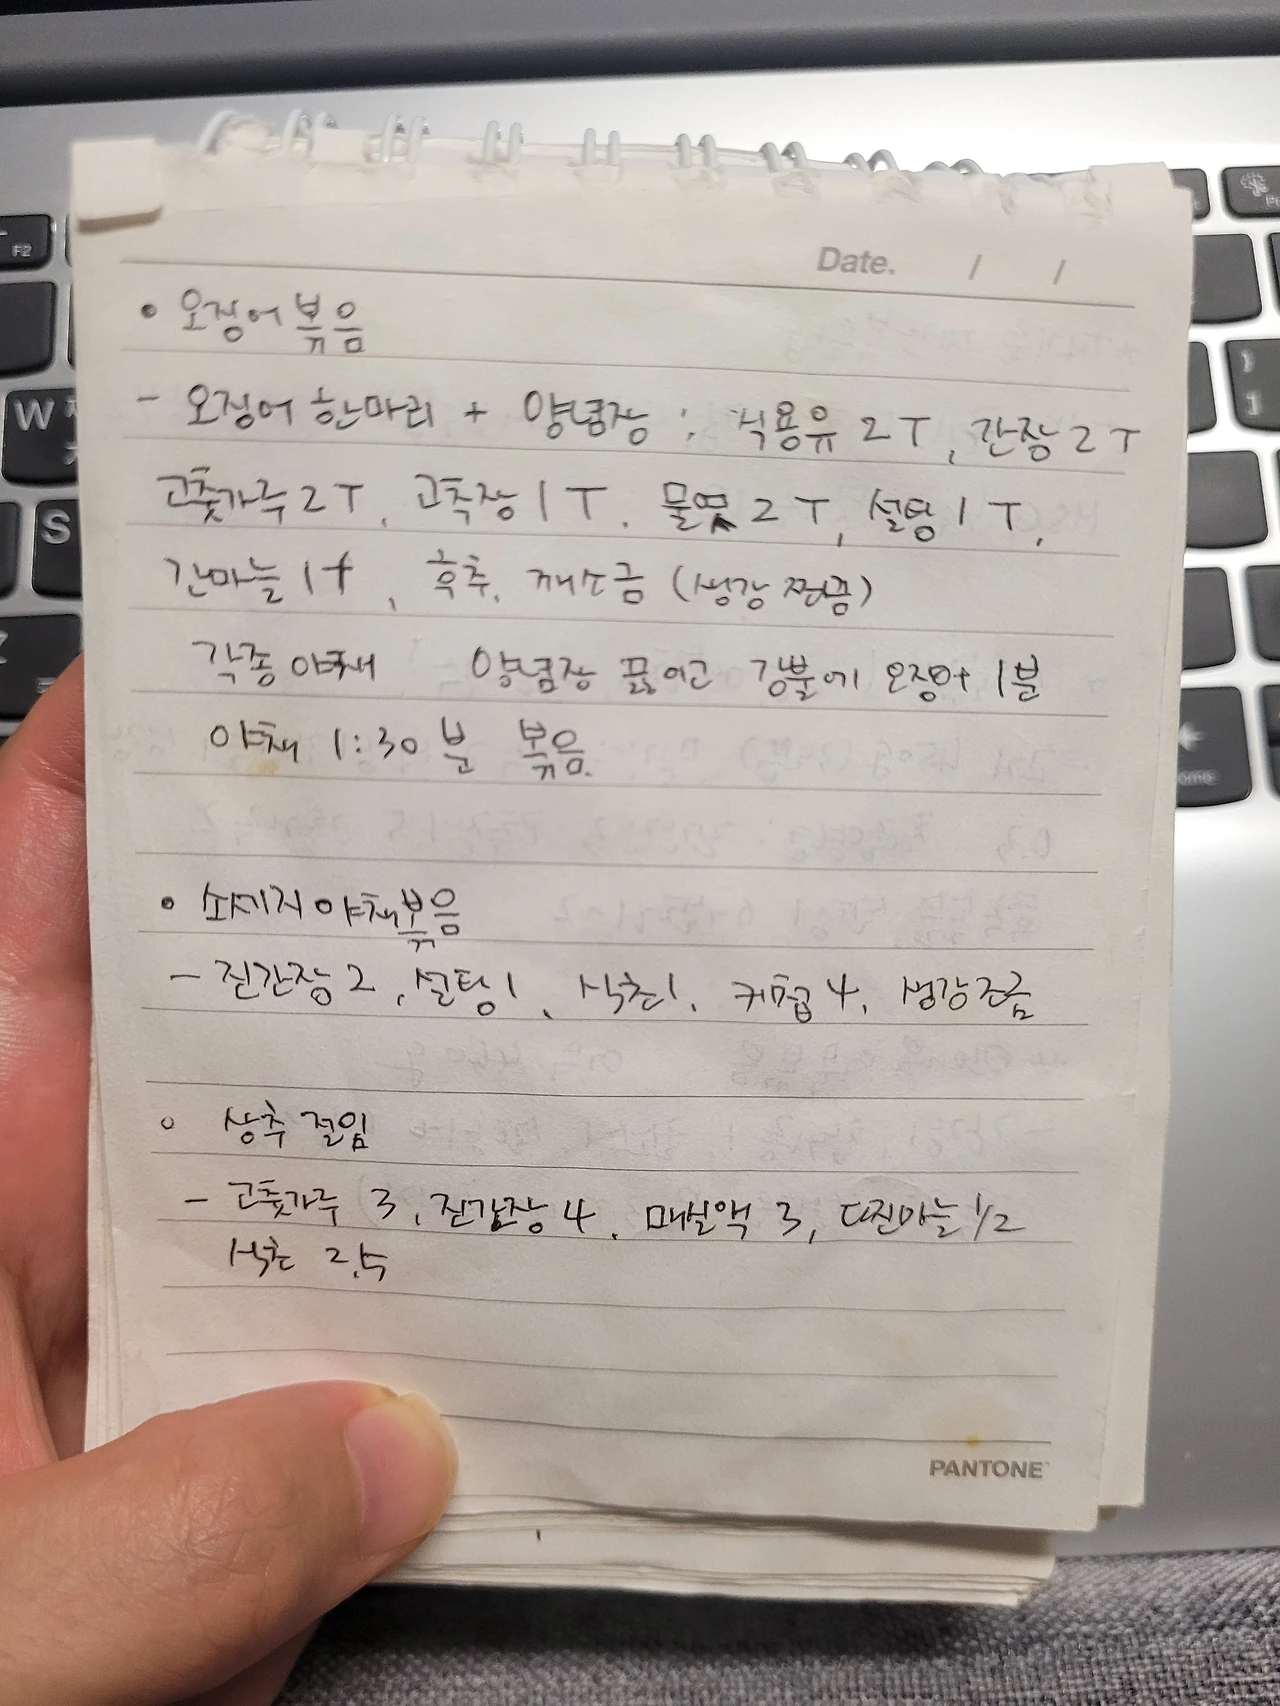 Date. / /
• 오징어볶음
- 오징어 한마리 + 양념장 : 식용유 2T, 간장 2T
고춧가루 2T, 고추장 1T, 물엿 2T, 설탕 1T,
간마늘 1T, 후추, 깨소금 (생강 쪼끔)
각종 야채 양념장 끓이고 강불에 오징어 1분
야채 1:30분 볶음.
• 소세지야채볶음
- 진간장 2, 설탕 1, 식초 1, 케찹 4, 생강조금
◦ 상추 절임
- 고춧가루 3, 진간장 4, 매실액 3, 다진마늘 1/2
식초 2
PANTONE
F2
W
S
ome